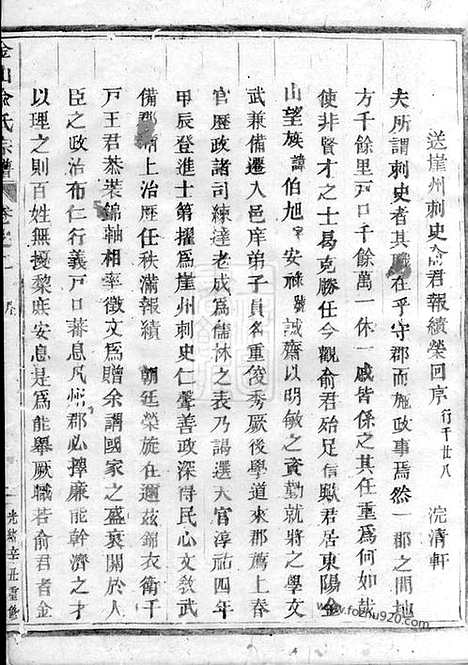 送崖州刺史俞君報績榮回序 行千廿八 浣清軒
夫所謂刺史者其職在乎守郡而施政事焉然一郡之間地
方千餘里戶口千餘萬一休一戚皆係之其任重爲何如哉
使非賢才之士曷克勝任今觀俞君居東陽金
山望族諱伯旭字安祿號誠齋以明敏之資勤就將之學文
武兼備遷入邑庠弟子員名重俊秀厥後學道來郡薦上春
官歷政諸司練達老成爲儒林之表乃謁選天官淳祐四年
甲辰登進士第擢爲崖州刺史仁聲善政深得民心文敎武
備郡稱上治歷任秩滿報績 朝廷榮旋在邇茲錦衣衛千
戸王君恭裝錦軸相率徵文爲贈余謂國家之盛衰關於人
臣之政治布仁行義戸口蕃息凡州郡必擇廉能幹濟之才
以理之則百姓無擾黎庶安息是爲能舉厥職若俞君者金
金山俞氏宗譜 卷之二 序
一 光緒辛丑重修
www.fozhu920.com